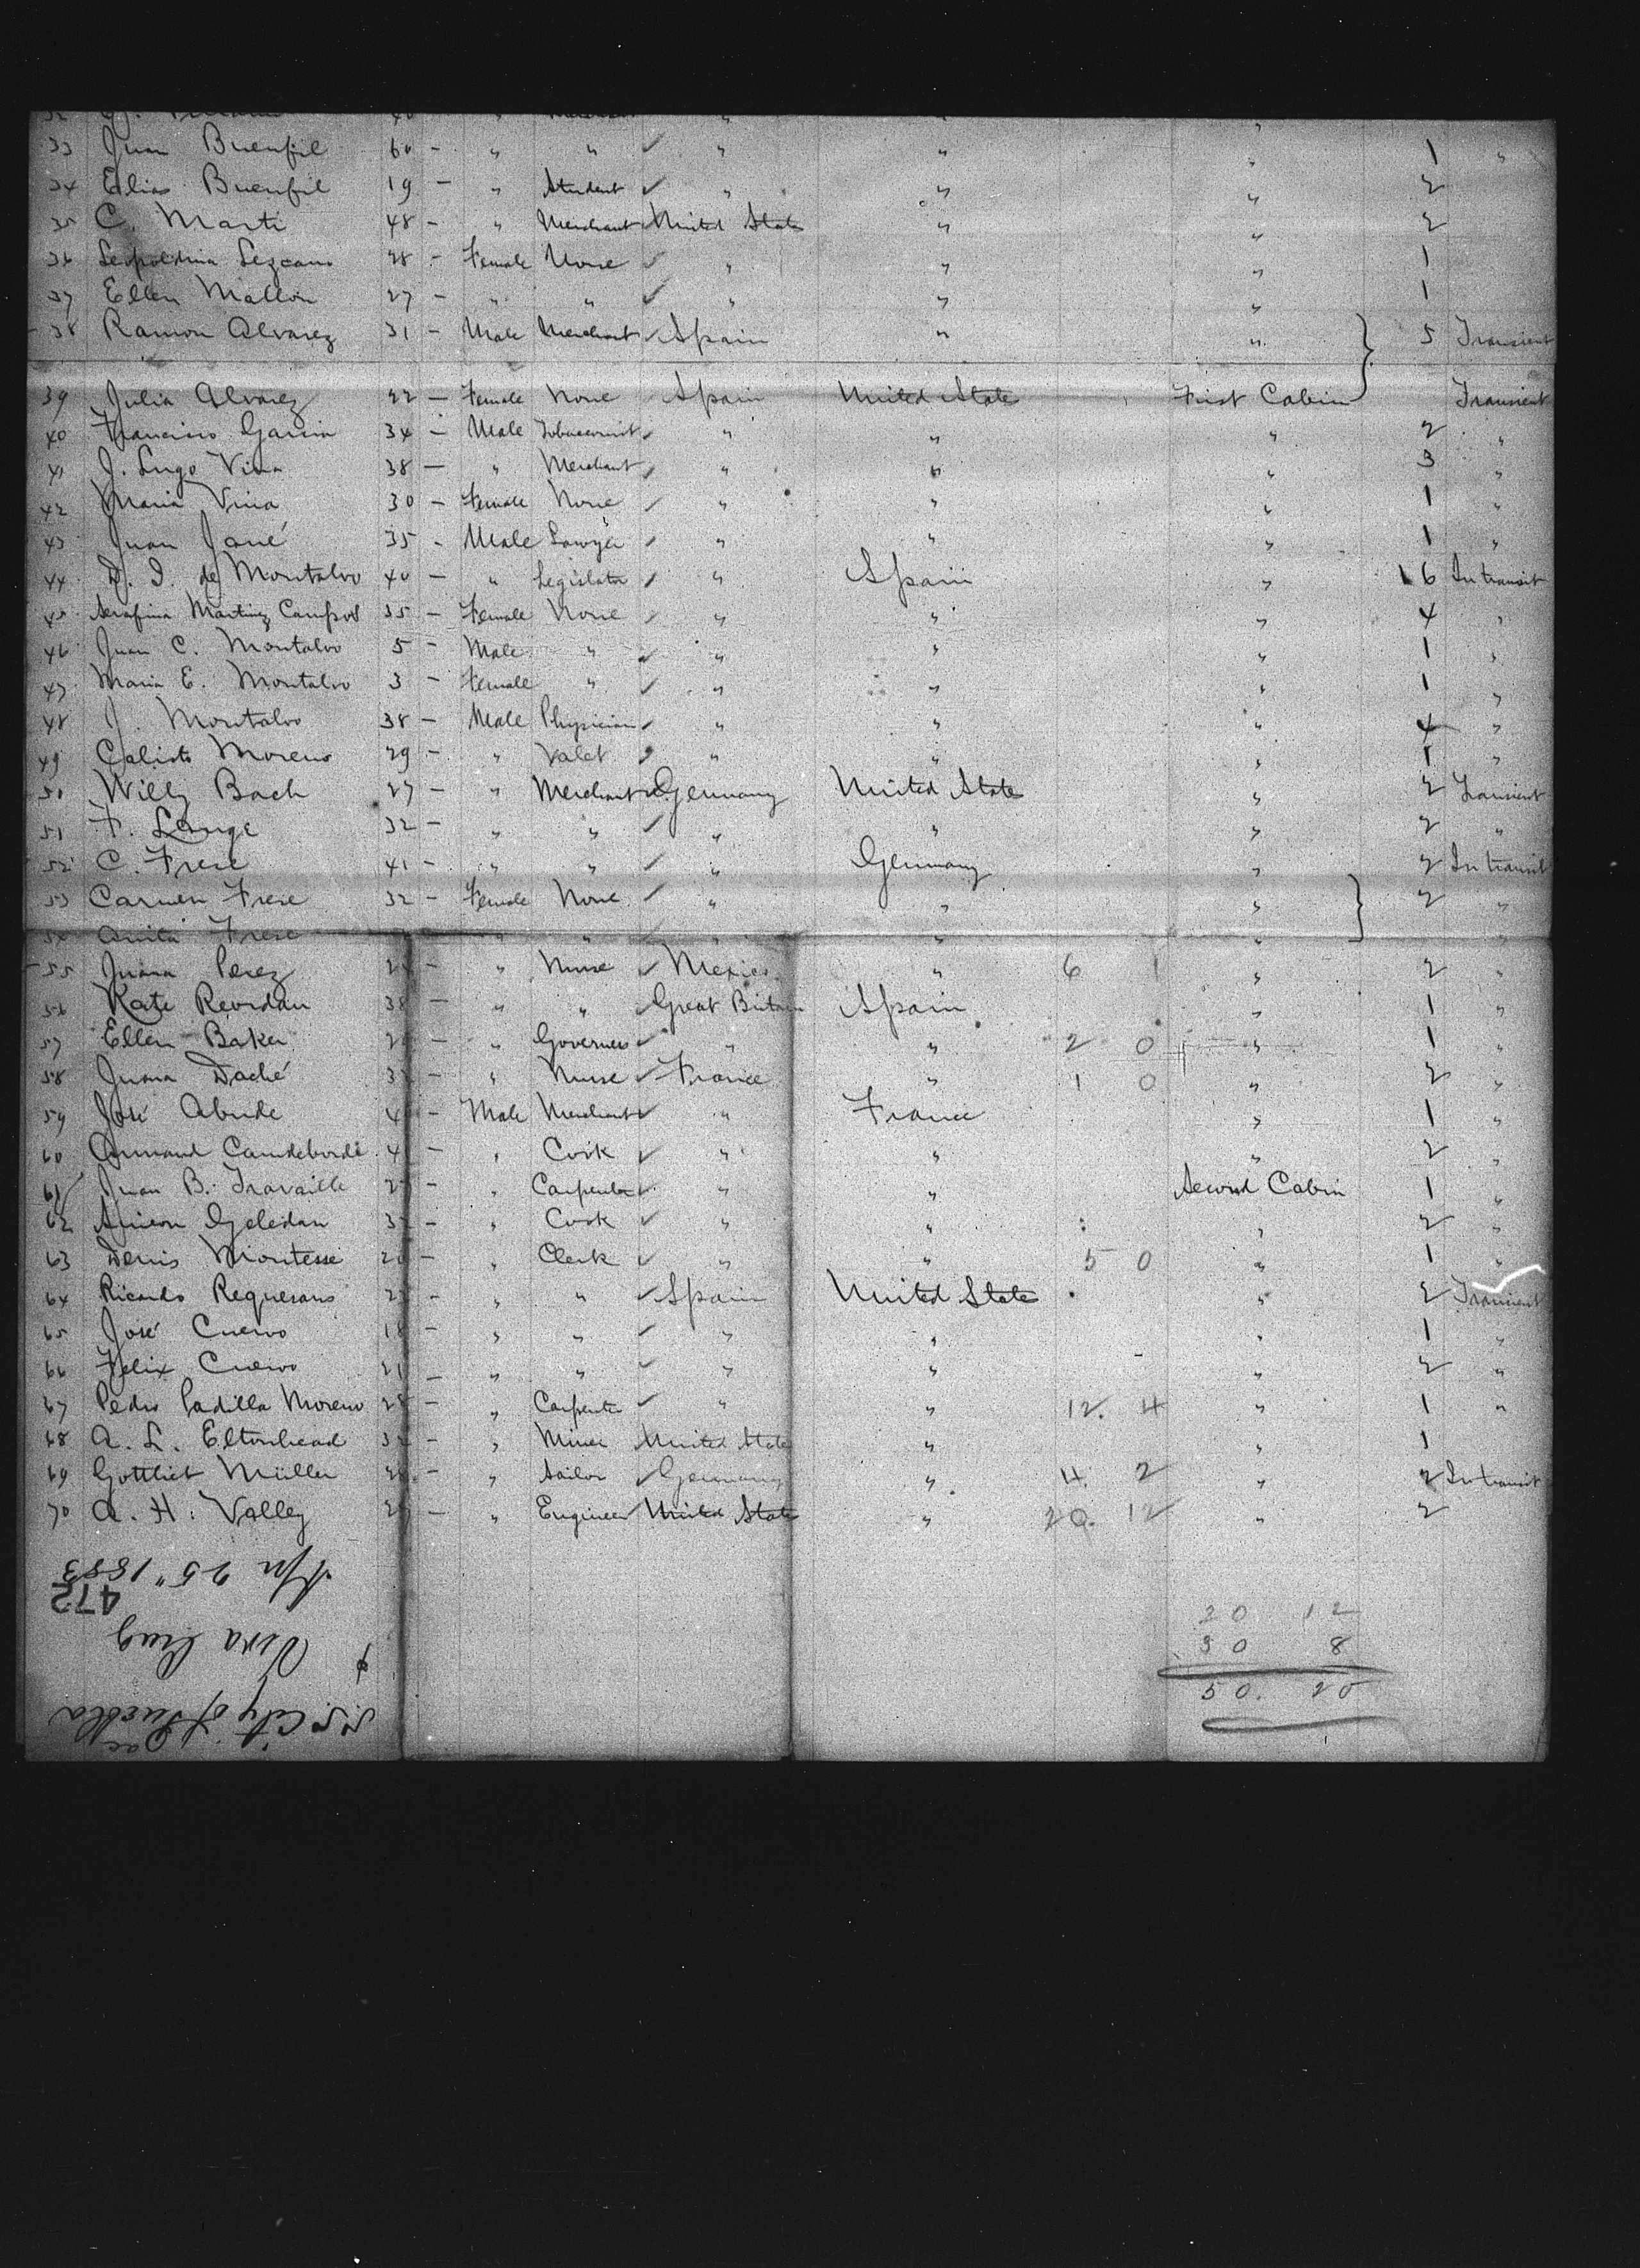 33 Juan Buenfil 60 - " " " " " 1 "
34 Elias Buenfil 19 - " Student " " " 2
35 C. Marti 48 - " Merchant United State " " 2
36 Leopoldina Lezcano 28 - Female None " " " 1
37 Ellen Mallon 27 - " " " " " 1
38 Ramon Alvarez 31 - Male Merchant Spain " " 5 Transient
39 Julia Alvarez 22 - Female None Spain United State First Cabin Transient
40 Francisco Garcia 34 - Male Tobacconist " " " 2 "
41 J. Lugo Vina 38 - " Merchant " " " 3 "
42 Maria Vina 30 - Female None " " " 1 "
43 Juan Jané 35 - Male Lawyer " " " 1 "
44 D. I. de Montalvo 40 - " Legislator " Spain " 16 In transit
45 Serafina Martinez Campos 35 - Female None " " " 4 "
46 Juan C. Montalvo 5 - Male " " " " 1 "
47 Maria E. Montalvo 3 - Female " " " " 1 "
48 J. Montalvo 38 - Male Physician " " " 4 "
49 Calisto Moreno 29 - " Valet " " " 1 "
50 Willy Bach 27 - " Merchant Germany United State " 2 Transient
51 F. Lange 32 - " " " " " 2 "
52 C. Frese 41 - " " " Germany " 2 In transit
53 Carmen Frese 32 - Female None " " " 2 "
54 Anita Frese " " " " " "
55 Juana Perez - " Nurse Mexico " 6 1 " 2 "
56 Kate Reordan 38 - " " Great Britain Spain " 1 "
57 Ellen Baker - " Governess " " 2 0 " 1 "
58 Juana Daché - " Nurse France " 1 0 " 2 "
59 José Abride - Male Merchant " France " 1 "
60 Armand Camdeborde - " Cook " " " 2 "
61 Juan B. Travaille - " Carpenter " " Second Cabin 1 "
62 Simeon Geledan - " Cook " " " 2 "
63 Denis Montesse - " Clerk " " 5 0 " 1 "
64 Ricardo Requesans - " " Spain United State " 2 Transient
65 José Cuervo 18 - " " " " " 1 "
66 Felix Cuervo 21 - " " " " " 2 "
67 Pedro Padilla Moreno - " Carpenter " " 12. 4 " 1 "
68 A. L. Eltonhead - " Miner United State " " 1
69 Gottlieb Müller - " Sailor Germany " 4. 2 " 2 In transit
70 A. H. Valley - " Engineer United State " 20. 12 " 2
20 12
30 8
50. 20
S.S. City of Puebla
Vera Cruz
472
Apr 25" 1883